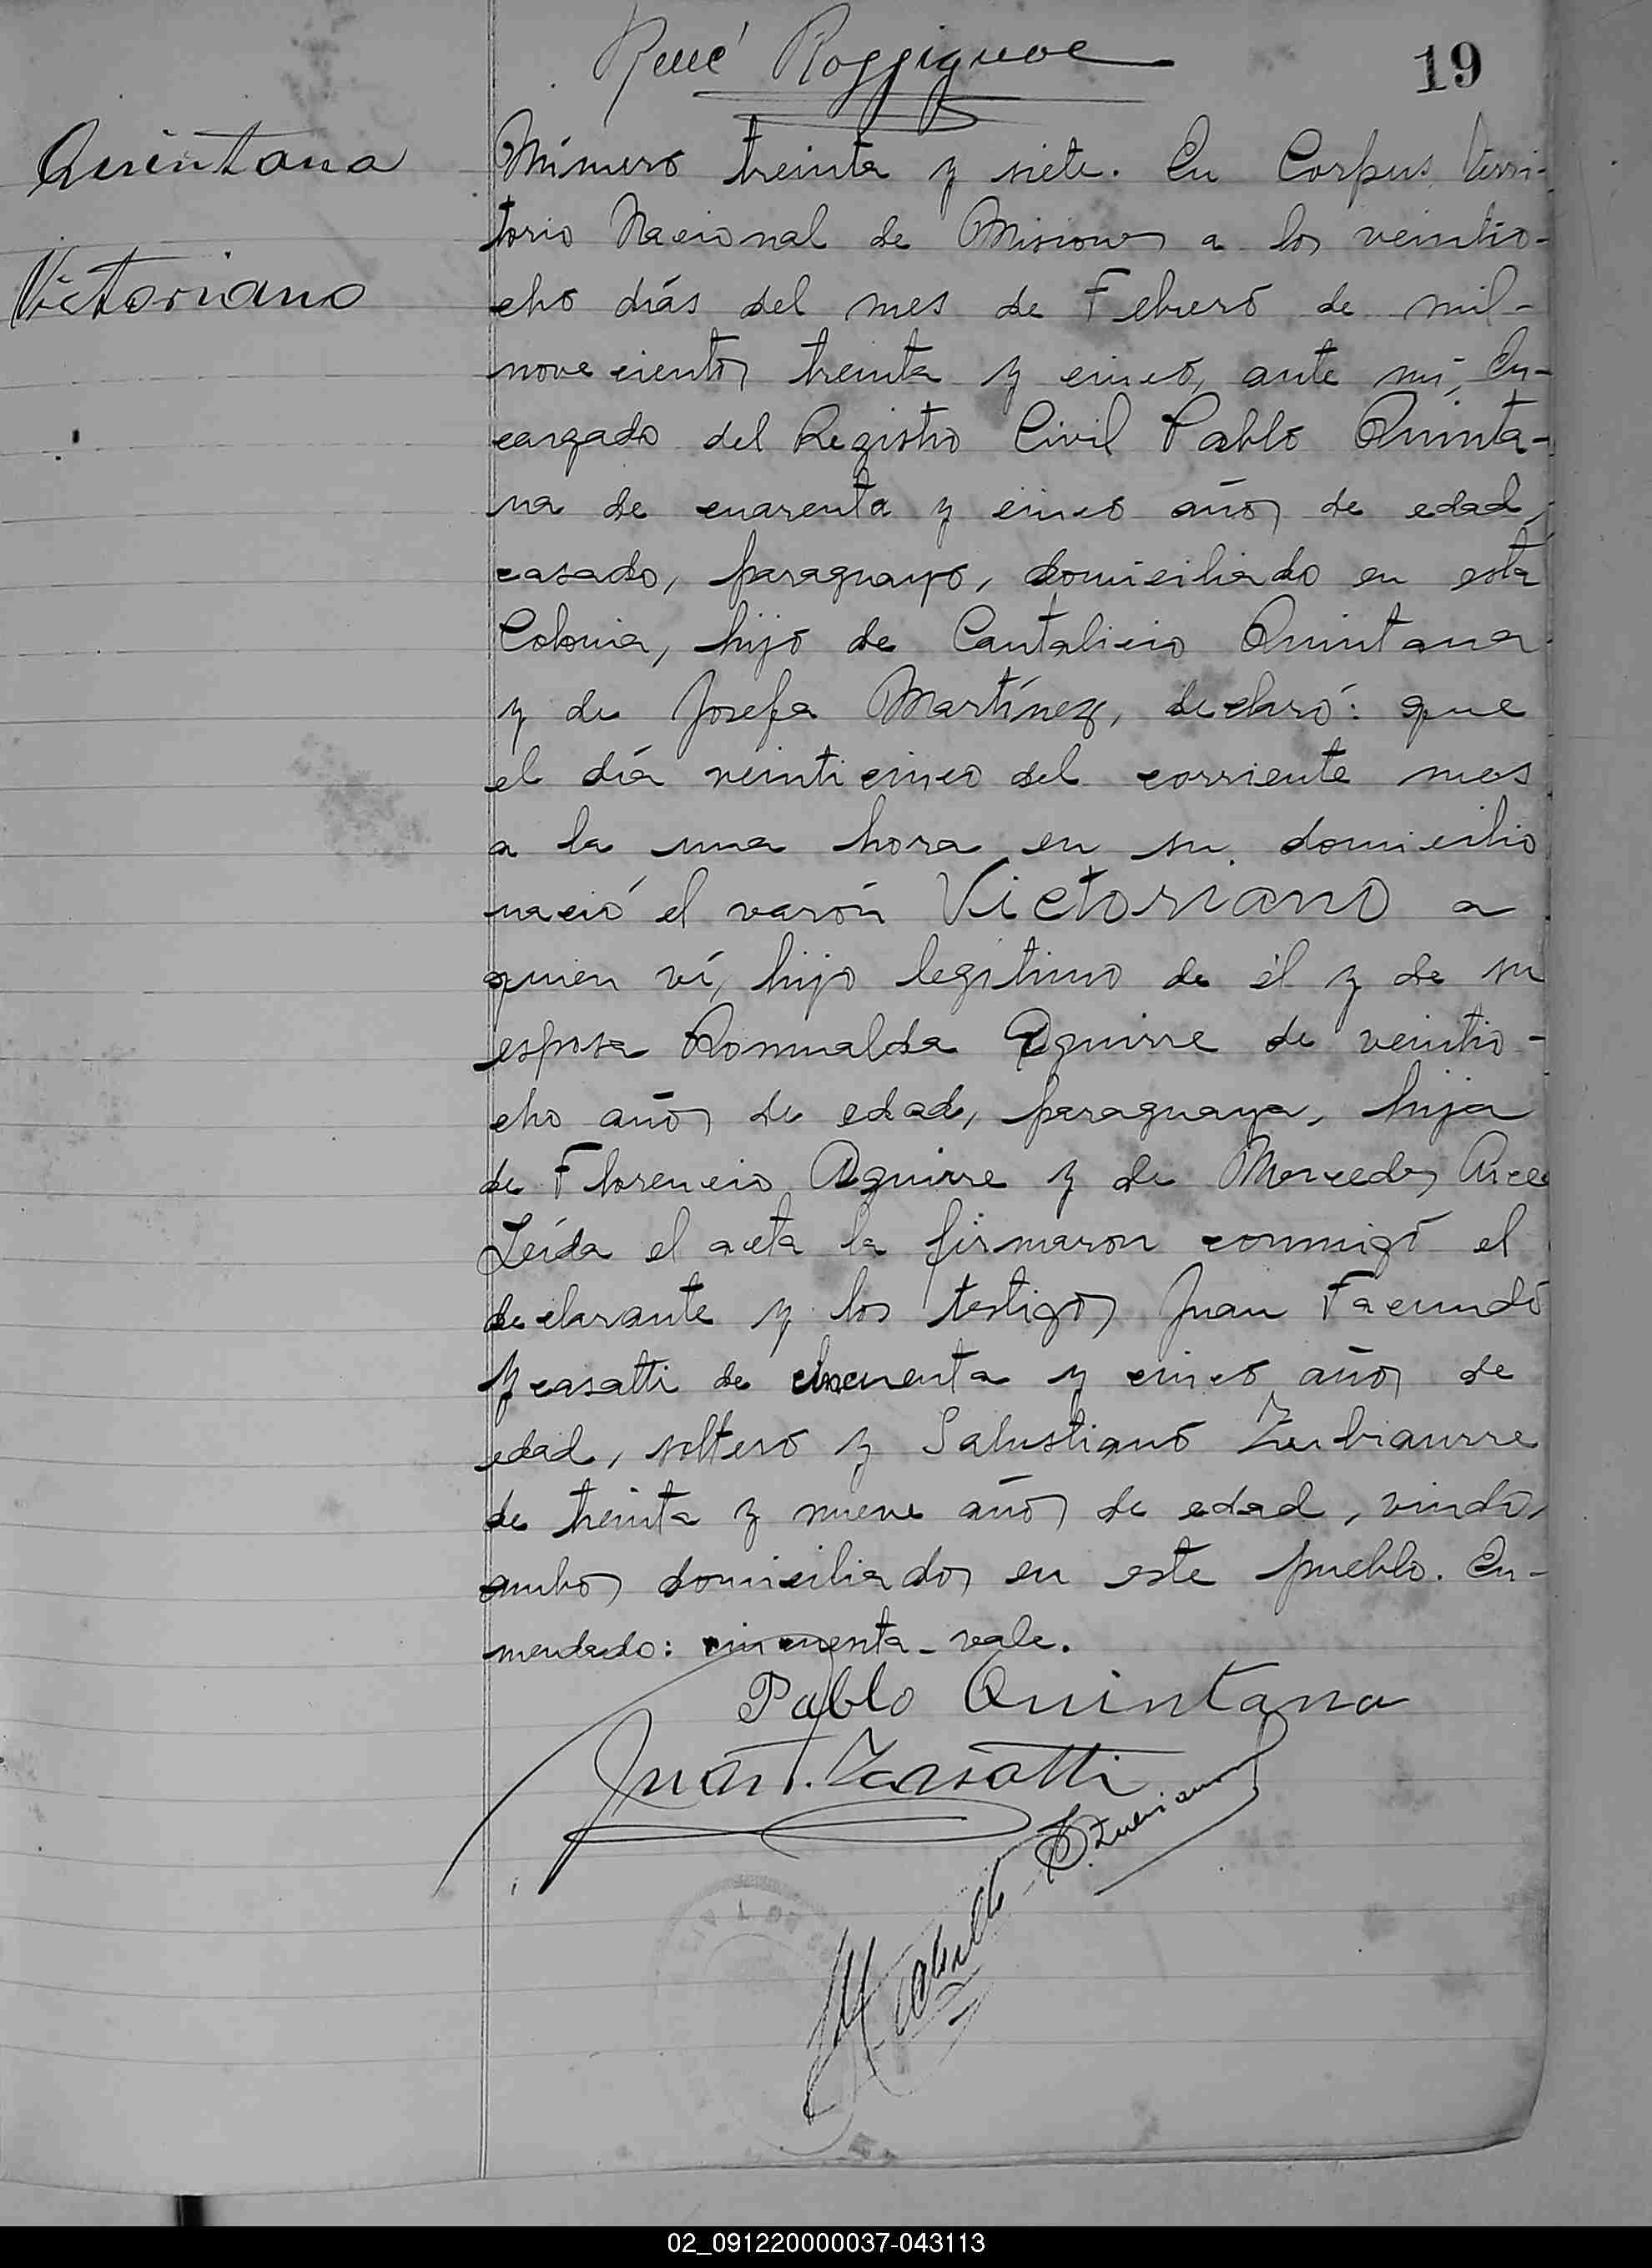 René Rossignol
19
Quintana
Victoriano
Número treinta y siete. En Corpus, Terri-
torio Nacional de Misiones a los veintio-
cho días del mes de Febrero de mil-
novecientos treinta y cinco, ante mí, En-
cargado del Registro Civil Pablo Quinta-
na de cuarenta y cinco años de edad,
casado, paraguayo, domiciliado en esta
Colonia, hijo de Cantalicio Quintana
y de Josefa Martínez, declaró: que
el día veinticinco del corriente mes
a la una hora en su domicilio
nació el varón Victoriano a
quien ví, hijo legítimo de él y de su
esposa Romualda Aguirre de veintio-
cho años de edad, paraguaya, hija
de Florencio Aguirre y de Mercedes Arce
Leída el acta la firmaron conmigo el
declarante y los testigos Juan Facundo
Ycasatti de cincuenta y cinco años de
edad, soltero y Salustiano Zubiaurre
de treinta y nueve años de edad, viudo,
ambos domiciliados en este pueblo. En-
mendado: cincuenta - vale.
Pablo Quintana
Juan F. Ycasatti
S. Zubiaurre
02_091220000037-043113